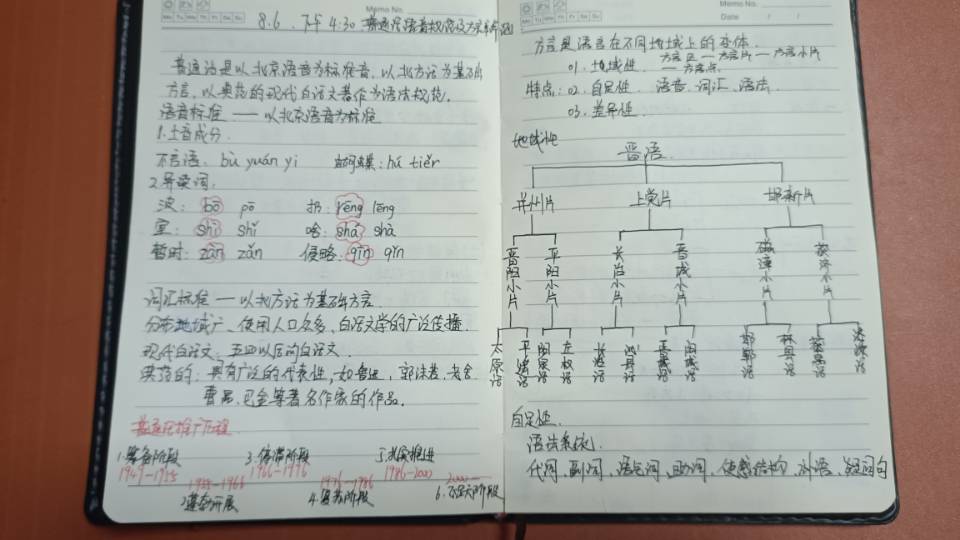 Memo No.
Mo Tu We Th Fr Sa Su
8.6. 下午 4:30 普通话语音规范及方言
普通话是以北京语音为标准音，以北方话为基础
方言，以典范的现代白话文著作为语法规范。
语音标准 —— 以北京语音为标准
1.土音成分
不言语：bù yuán yi 蝴蝶：hú tiěr
2.异读词：
波：bō pō 扔：rēng lēng
室：shì shǐ 啥：shá shà
暂时：zàn zǎn 侵略：qīn qǐn
词汇标准 — 以北方话为基础方言
分布地域广、使用人口众多、白话文学的广泛传播.
现代白话文：五四以后的白话文.
典范的：具有广泛的代表性，如鲁迅，郭沫若，老舍
曹禺，巴金等著名作家的作品。
普通话推广历程
1.筹备阶段 3.停滞阶段
1949-1955 1956-1966 1966-1976 1976-1986 1986-2000 2000-
4.复苏阶段
Memo No.
Mo Tu We Th Fr Sa Su
Date / /
方言是语言在不同地域上的变体.
01. 地域性. 方言区 — 方言片 — 方言小片
— 方言点.
特点：02. 自足性. 语音、词汇、语法
03. 差异性.
地域性
晋语
并州片 上党片 邯新片
晋阳小片 平阳小片 长治小片 晋城小片 磁漳小片 获济小片
太原话 平遥话 阳泉话 左权话 长治话 晋城话 阳城话 邯郸话 林县话 获嘉话 济源话
自足性.
语法系统.
代词，副词，语气词，助词，使感结构，补语，疑问句